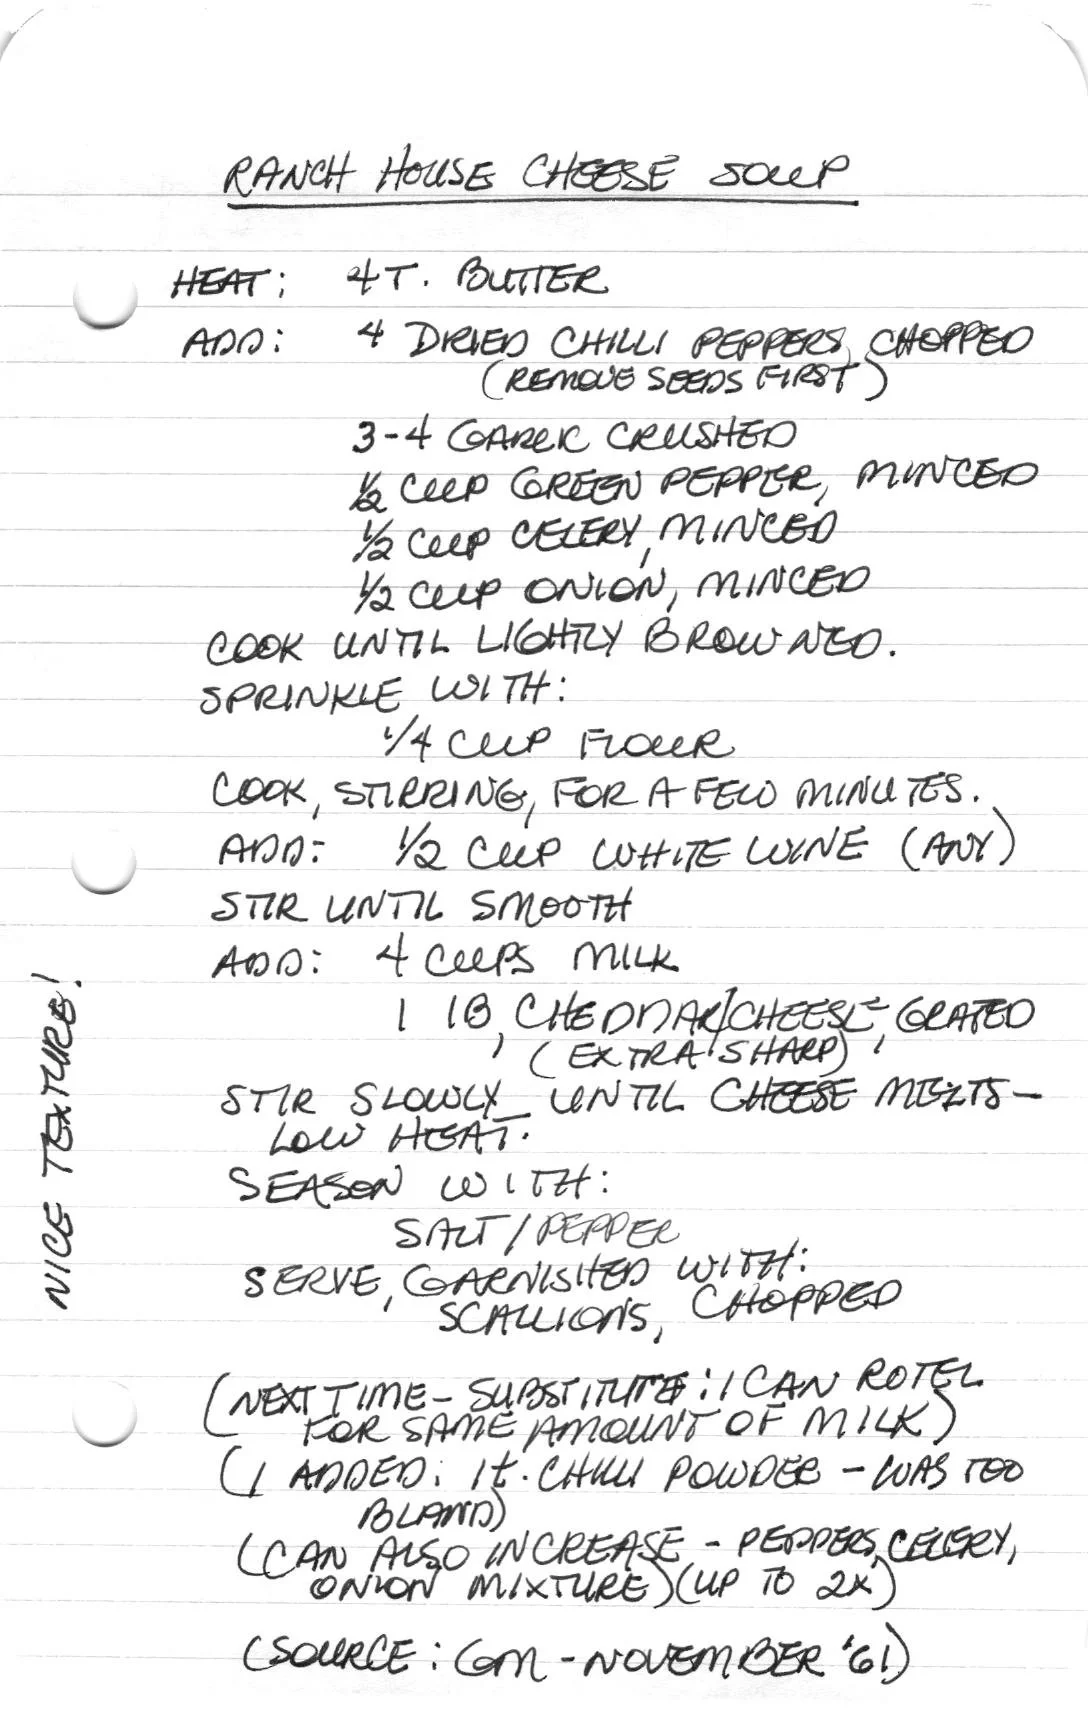 RANCH HOUSE CHEESE SOUP
HEAT: 4 T. BUTTER
ADD: 4 DRIED CHILLI PEPPERS, CHOPPED
(REMOVE SEEDS FIRST)
3-4 GARLIC CRUSHED
1/2 CUP GREEN PEPPER, MINCED
1/2 CUP CELERY, MINCED
1/2 CUP ONION, MINCED
COOK UNTIL LIGHTLY BROWNED.
SPRINKLE WITH:
1/4 CUP FLOUR
COOK, STIRRING, FOR A FEW MINUTES.
ADD: 1/2 CUP WHITE WINE (ANY)
STIR UNTIL SMOOTH
ADD: 4 CUPS MILK
1 LB, CHEDDAR/CHEESE, GRATED
(EXTRA SHARP)
STIR SLOWLY UNTIL CHEESE MELTS-
LOW HEAT.
SEASON WITH:
SALT/PEPPER
SERVE, GARNISHED WITH:
SCALLIONS, CHOPPED
NICE TEXTURE!
(NEXT TIME - SUBSTITUTE: 1 CAN ROTEL
FOR SAME AMOUNT OF MILK)
(I ADDED: 1 t. CHILLI POWDER - WAS TOO
BLAND)
(CAN ALSO INCREASE - PEPPERS, CELERY,
ONION MIXTURE) (UP TO 2X)
(SOURCE: GM - NOVEMBER '61)